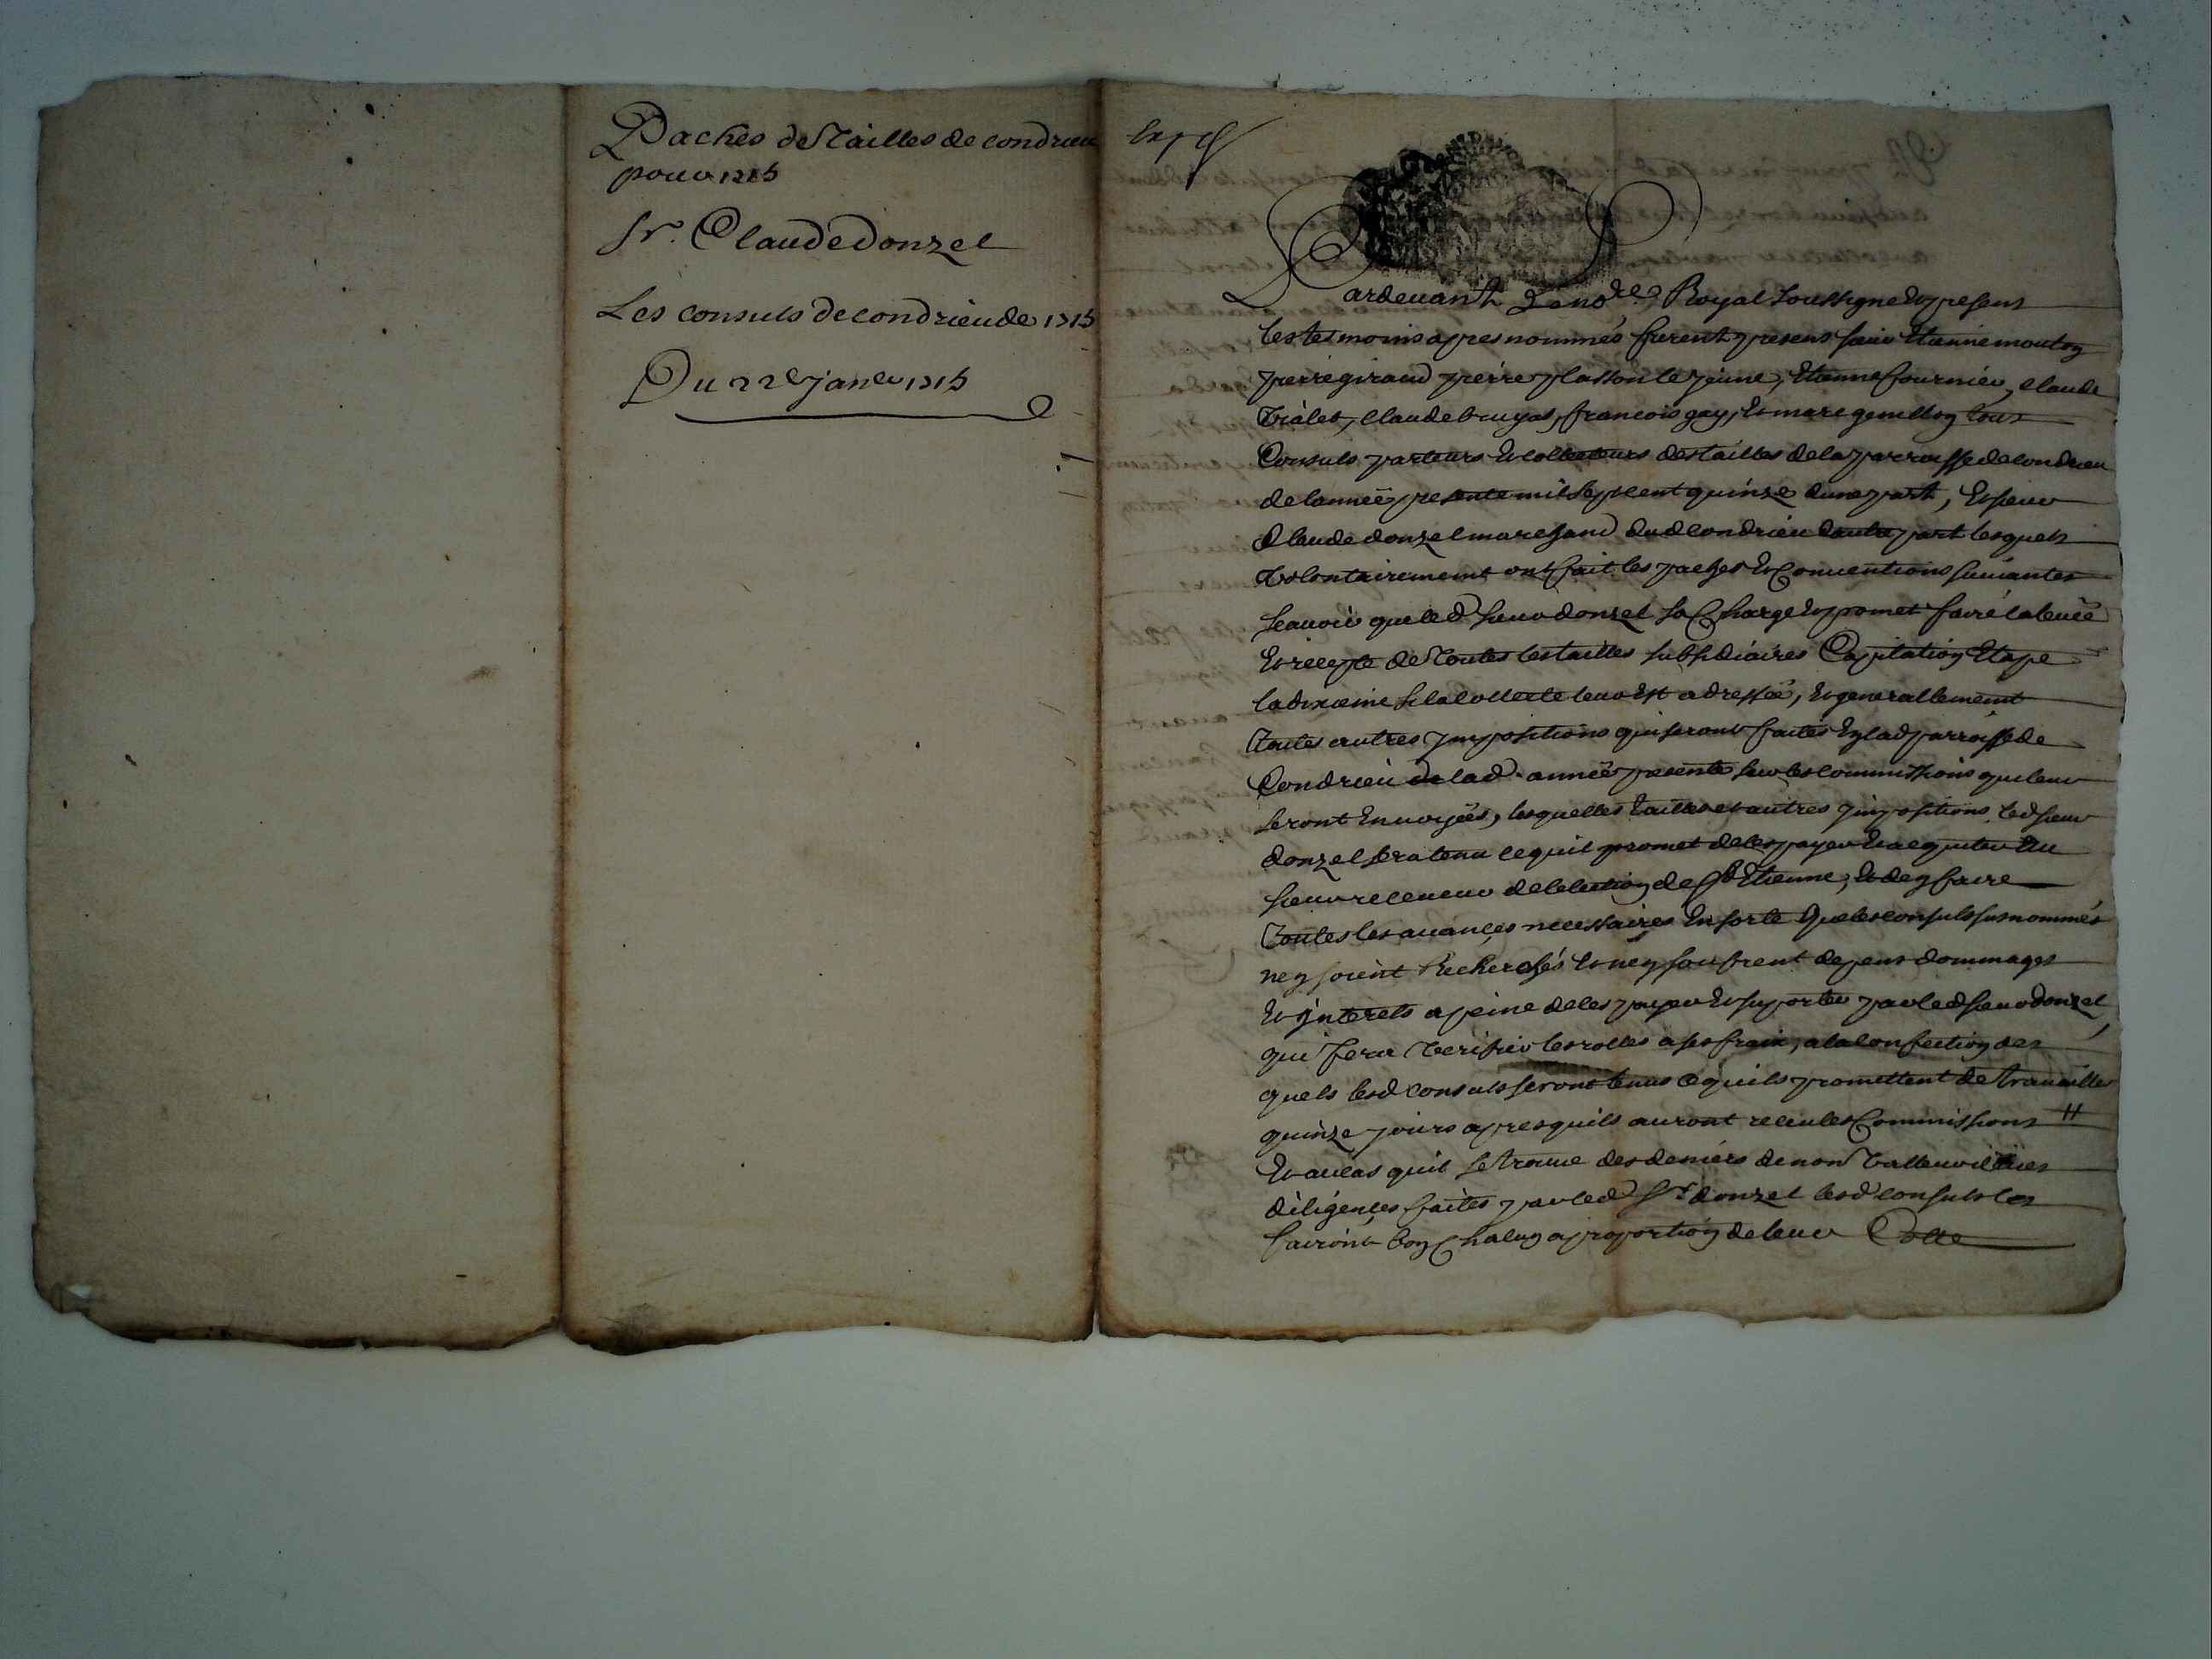 Paches de Tailles de condrieu
pour 1715
Sr. Claude donzel
Les consuls de condrieu de 1715
Du 22e janer 1715
Exp
Pardevant Le nore Royal soussigné et presens
les tesmoins apres nommés furent presens sieur Etienne mouton
pierre giraud pierre plasson le jeune, Etienne fournier, claude
Trialet, Claude bruyas, francois gay, et marc gemellon tous
Consuls parteurs et collecteurs des tailles de la parroisse de condrieu
de lannée presente mil sept cent quinze dune part, et sieur
Claude donzel marchand dud condrieu dautre part lesquels
volontairement ont fait les paches et Conventions suivantes
scavoir que led sieur donzel sa Charge et promet faire la levée
et recepte de Toutes les tailles subsidiaires Capitation Etape
la dixeime si la collecte leur est adressée, et generallement
Toutes autres jmpositions qui seront faites en lad parroisse de
Condrieu de lad. année presente sur les commissions qui leur
seront envoyées, lesquelles Tailles et autres jmpositions led sieur
donzel sera tenu ce quil promet de les payer et acquiter au
sieur receveur de lelection de St Etienne, et den faire
Toutes les avances necessaires en sorte que les consuls susnommés
nen soient Recherchés et nen soufrent depens dommages
et jnterets a peine de les payer et suporter par led sieur donzel
qui fera verifier les rolles a ses frais, a la confection des
quels lesd consuls seront tenus ce quils promettent de travailler
quinze jours apres quils auront receu les Commissions //
Et au cas quil se trouve des deniers de non valleur
diligences faites par led Sr donzel lesd consuls les
fairont bon Chalun a proportion de leur Cotte